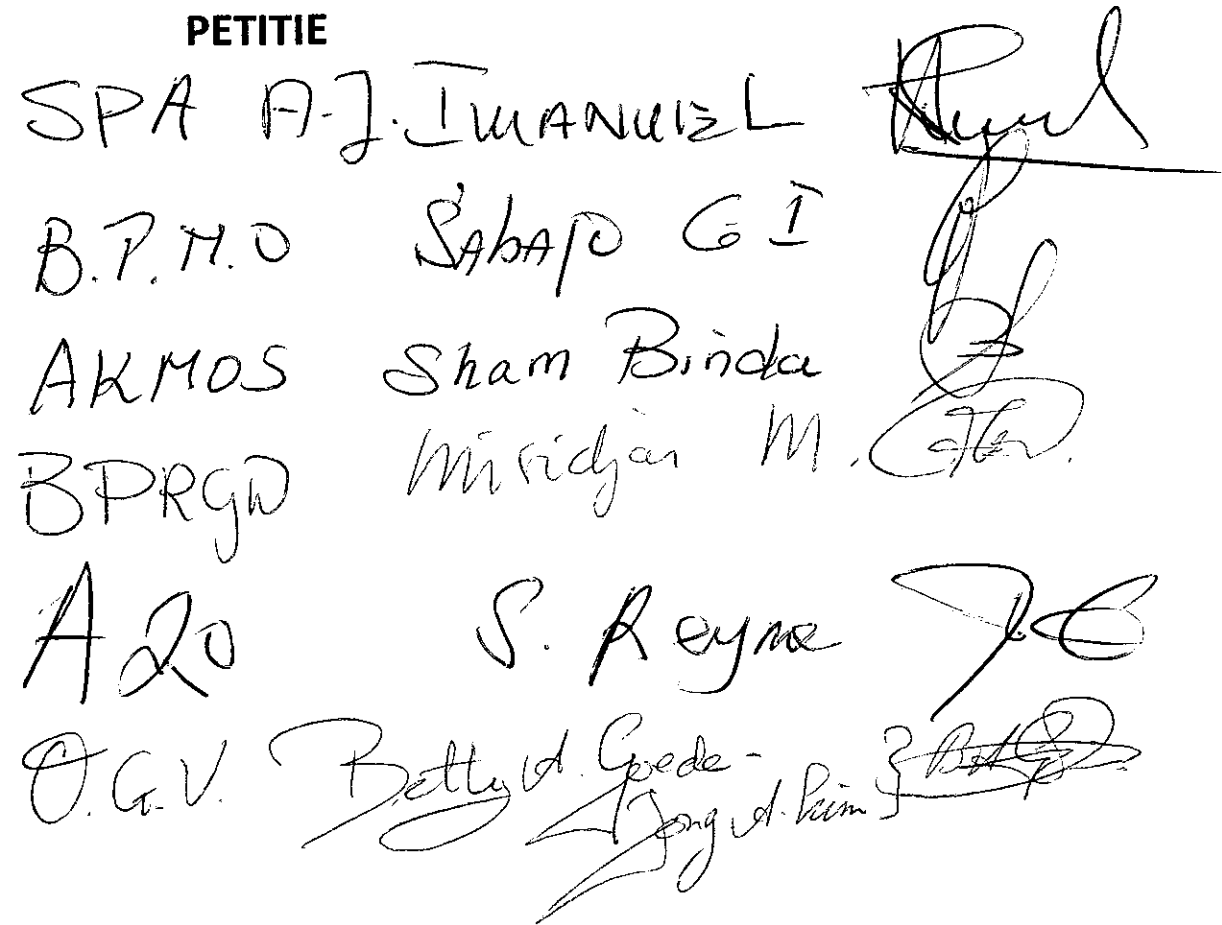 PETITIE
SPA A.J. IMANUEL
B.P.M.O SAbAjo G I
AKMOS Sham Binda
BPRGD Miridjan M.
A20 S. Reyme
O.G.V. Betty A. Goede-
Jong A. Pim